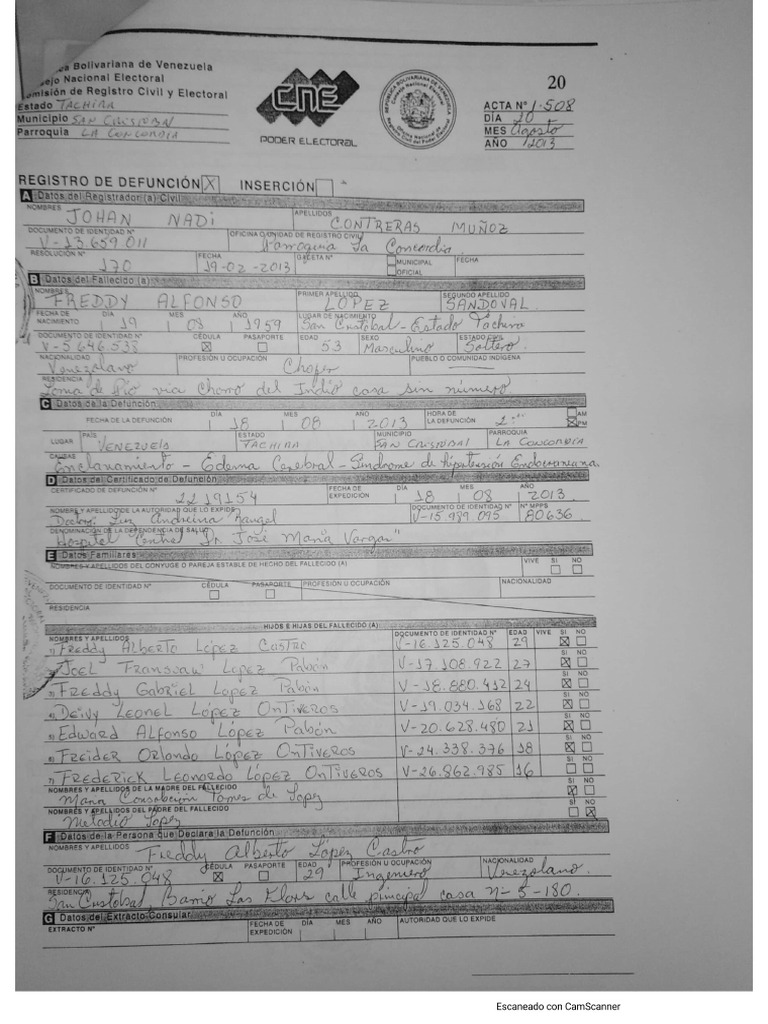 a Bolivariana de Venezuela
ejo Nacional Electoral
omisión de Registro Civil y Electoral
Estado TACHIRA
Municipio SAN CRISTOBAL
Parroquia LA CONCORDIA
CNE
PODER ELECTORAL
REPÚBLICA BOLIVARIANA DE VENEZUELA
20
ACTA Nº 1.508
DÍA 20
MES Agosto
AÑO 2013
REGISTRO DE DEFUNCIÓN X INSERCIÓN
A Datos del Registrador (a) Civil
NOMBRES JOHAN NADI APELLIDOS CONTRERAS MUÑOZ
DOCUMENTO DE IDENTIDAD Nº V-13.659.011 OFICINA O UNIDAD DE REGISTRO CIVIL Parroquia La Concordia
RESOLUCIÓN Nº 170 FECHA 19-02-2013 GACETA Nº MUNICIPAL OFICIAL FECHA
B Datos del Fallecido (a)
NOMBRES FREDDY ALFONSO PRIMER APELLIDO LÓPEZ SEGUNDO APELLIDO SANDOVAL
FECHA DE NACIMIENTO DÍA 19 MES 08 AÑO 1959 LUGAR DE NACIMIENTO San Cristóbal - Estado Tachira
DOCUMENTO DE IDENTIDAD Nº V-5.646.538 CÉDULA X PASAPORTE EDAD 53 SEXO Masculino ESTADO CIVIL Soltero
NACIONALIDAD Venezolano PROFESIÓN U OCUPACIÓN Chofer PUEBLO O COMUNIDAD INDÍGENA
RESIDENCIA Loma de Pio via Chorro del Indio casa sin número
C Datos de la Defunción
FECHA DE LA DEFUNCIÓN DÍA 18 MES 08 AÑO 2013 HORA DE LA DEFUNCIÓN AM X PM
LUGAR PAÍS VENEZUELA ESTADO TACHIRA MUNICIPIO SAN CRISTOBAL PARROQUIA LA CONCORDIA
CAUSAS Enclavamiento - Edema Cerebral - Sindrome de hipertensión Endocraneana.
D Datos del Certificado de Defunción
CERTIFICADO DE DEFUNCIÓN Nº 2219154 FECHA DE EXPEDICIÓN DÍA 18 MES 08 AÑO 2013
NOMBRES Y APELLIDOS DE LA AUTORIDAD QUE LO EXPIDE Doctora Luz Andreina Rangel DOCUMENTO DE IDENTIDAD Nº V-15.989.095 Nº MPPS 80636
DENOMINACIÓN DE LA DEPENDENCIA DE SALUD Hospital Central Dr José María Vargas"
E Datos Familiares
NOMBRES Y APELLIDOS DEL CONYUGE O PAREJA ESTABLE DE HECHO DEL FALLECIDO (A) VIVE SI NO
DOCUMENTO DE IDENTIDAD Nº CÉDULA PASAPORTE PROFESIÓN U OCUPACIÓN NACIONALIDAD
RESIDENCIA
HIJOS E HIJAS DEL FALLECIDO (A)
NOMBRES Y APELLIDOS DOCUMENTO DE IDENTIDAD Nº EDAD VIVE SI NO
1) Freddy Alberto López Castro V-16.125.048 29 X
2) Joel Lopez Pabón V-17.108.922 27 X
3) Freddy Gabriel Lopez Pabón V-18.880.412 24 X
4) Deivy Leonel López Ontiveros V-19.034.168 22 X
5) Edward Alfonso López Pabón V-20.628.480 21 X
6) Freider Orlando López Ontiveros V-24.338.376 18 X
7) Frederick Leonardo López Ontiveros V-26.862.985 16
NOMBRES Y APELLIDOS DE LA MADRE DEL FALLECIDO Maria Torres de Lopez SI X NO
NOMBRES Y APELLIDOS DEL PADRE DEL FALLECIDO Metodio Lopez SI NO X
F Datos de la Persona que Declara la Defunción
NOMBRES Y APELLIDOS Freddy Alberto López Castro
DOCUMENTO DE IDENTIDAD Nº V-16.125.048 CÉDULA X PASAPORTE EDAD 29 PROFESIÓN U OCUPACIÓN Ingeniero NACIONALIDAD Venezolano.
RESIDENCIA San Cristóbal, Barrio Las Flores calle principal casa n- 5-180.
G Datos del Extracto Consular
EXTRACTO Nº FECHA DE EXPEDICIÓN DÍA MES AÑO AUTORIDAD QUE LO EXPIDE
Escaneado con CamScanner